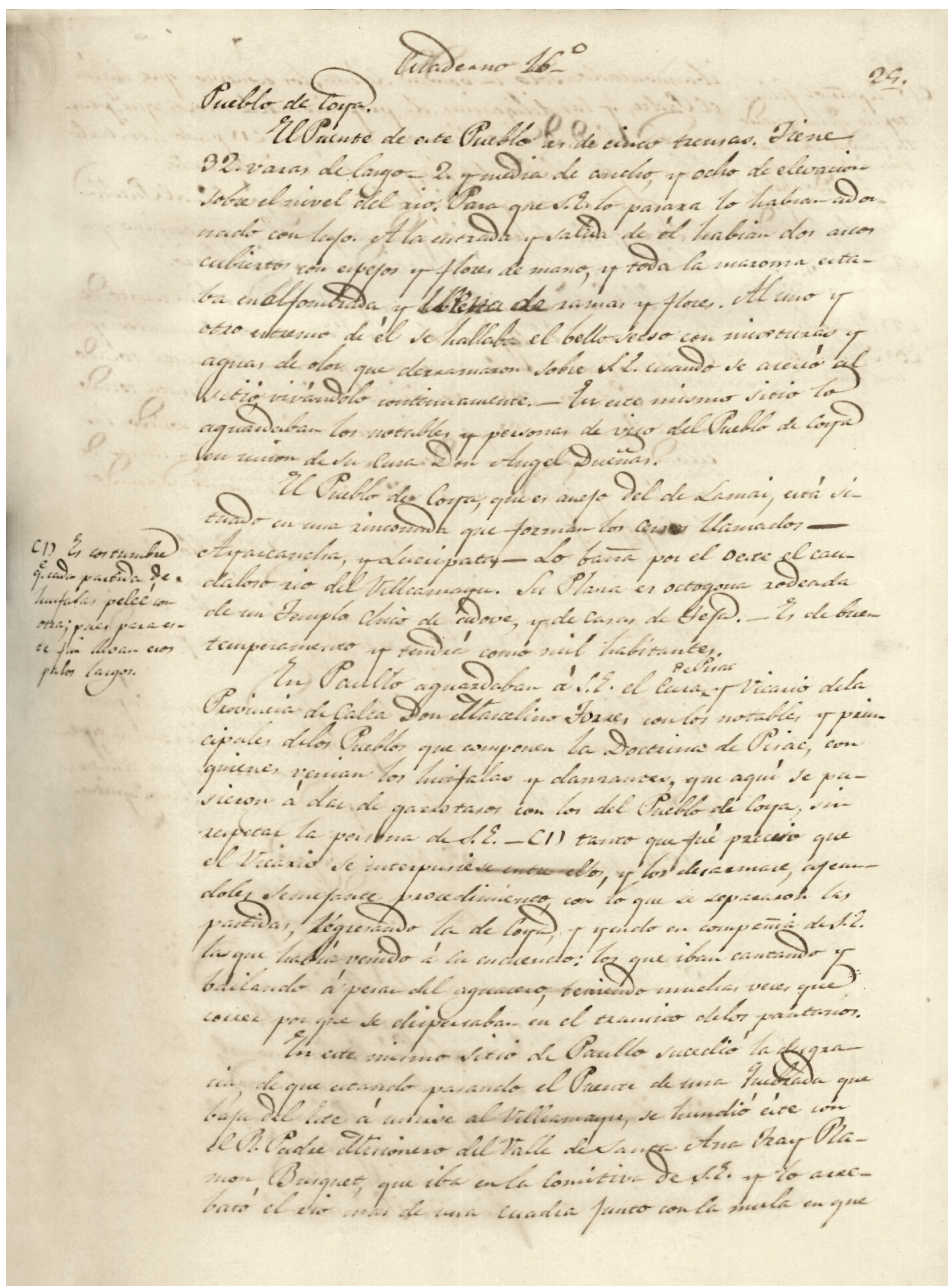 Cuaderno 16º
29.
Pueblo de Coya.
El Puente de este Pueblo es de cinco trensas. Tiene
32 varas de largo - 2 y media de ancho, y ocho de elevacion
sobre el nivel del rio. Para que S.E. lo pasara lo habian ador-
nado con lujo. A la entrada y salida de él habian dos arcos
cubiertos con espejos y flores de mano, y toda la maroma esta-
ba enalfombrada y llena de ramas y flores. Al uno y
otro estremo de él se hallaba el bello secso con misturas y
aguas de olor que derramaron sobre S.E. cuando se acercó al
sitio, vivándolo continuamente. — En este mismo sitio lo
aguardaban los notables y personas de viso del Pueblo de Coya
en union de su Cura Don Angel Dueñas.
El Pueblo de Coya, que es anejo del de Lamai, está si-
tuado en una rinconada que forman los cerros llamados —
Ayarcancha, y Luciupata — Lo baña por el Oeste el cau-
daloso rio del Villcamayu. Su Plaza es octogona rodeada
de un Templo chico de adove, y de casas de teja. — Es de buen
temperamento y tendrá como mil habitantes.
(1) Es costumbre
q. cada partida de
huifalas peleé con
otra; pues para es-
te fin llevan unos
palos largos.
En Paullo aguardaban á S.E. el Cura de Pisac y Vicario de la
Provincia de Calca Don Marcelino Torres con los notables y prin-
cipales delos Pueblos que componen la Doctrina de Pisac, con
quienes venian los huifalas y danzantes, que aquí se pu-
sieron á dar de garrotasos con los del Pueblo de Coya, sin
respetar la persona de S.E. — (1) tanto que fué preciso que
el Vicario se interpusiese entre ellos, y los desarmase, afean-
doles semejante procedimiento, con lo que se separaron las
partidas, regresando la de Coya, y yendo en compañia de S.E.
la que habia venido á su encuentro: los que iban cantando y
bailando á pesar del aguacero, teniendo muchas veces que
correr por que se dispersaban en el transito delos pantanos.
En este mismo sitio de Paullo sucedió la desgra-
cia, de que estando pasando el Puente de una Quebrada que
baja del Este á unirse al Villcamayu, se hundió éste con
el R. Padre Misionero del Valle de Santa Ana Fray Ra-
mon Busquet, que iba en la Comitiva de S.E. y lo arre-
bató el rio mas de una cuadra junto con la mula en que